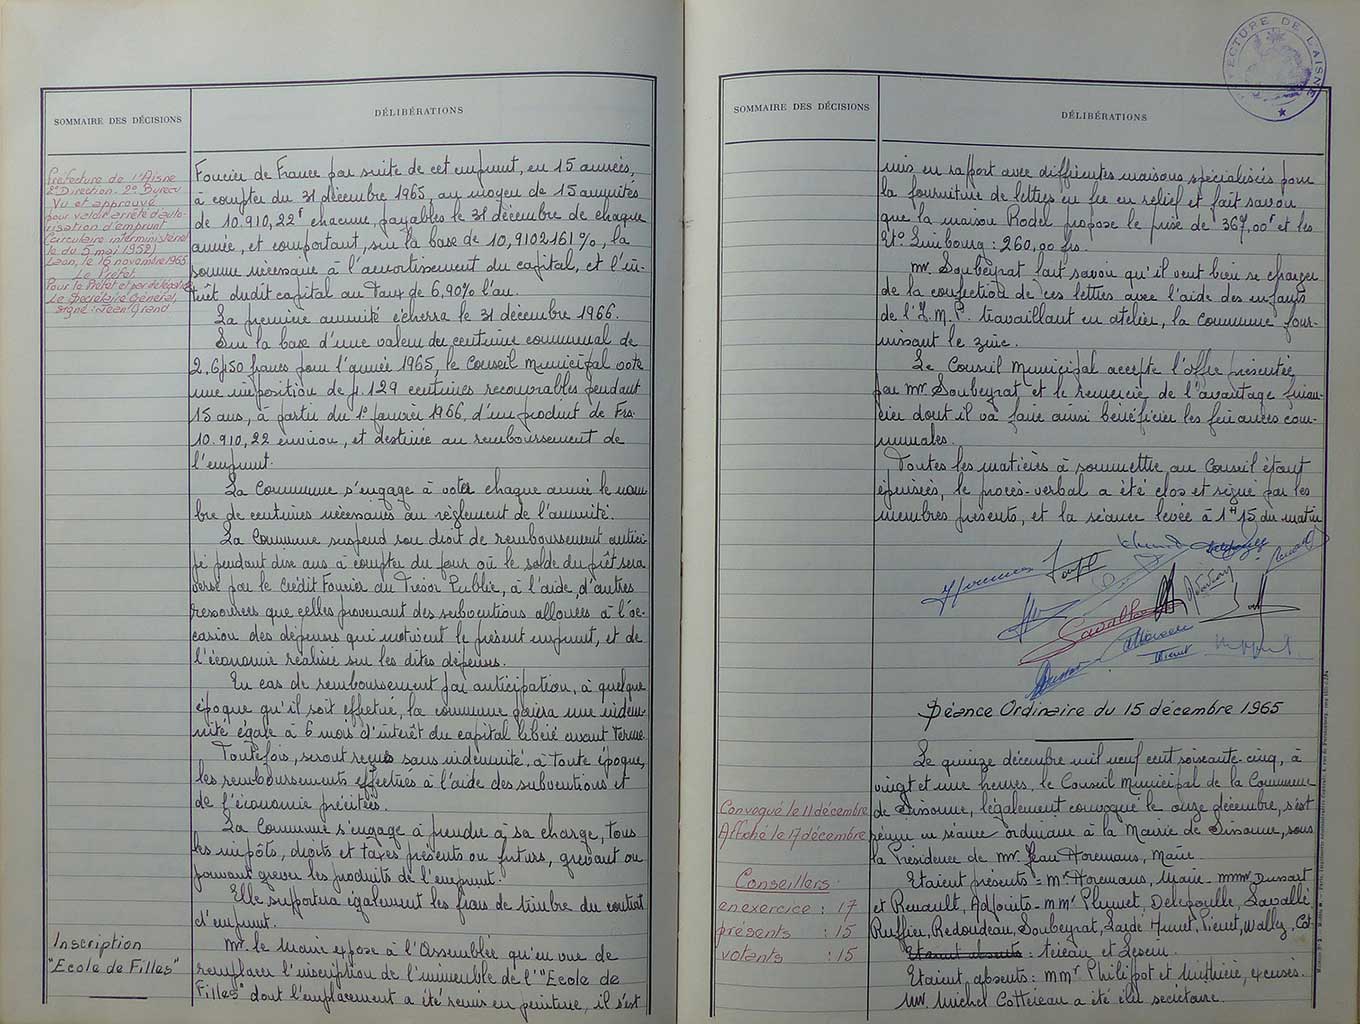 SOMMAIRE DES DÉCISIONS
DÉLIBÉRATIONS
Préfecture de l'Aisne
2e Direction. 2e Bureau
Vu et approuvé
pour valoir arrêté d'auto-
risation d'emprunt
(circulaire interministériel
le du 5 mai 1952)
Laon, le 16 novembre 1965
Le Préfet
Pour le Préfet et par délégation
Le Secrétaire Général,
signé : Jean Grand
Foncier de France par suite de cet emprunt, en 15 années,
à compter du 31 décembre 1965, au moyen de 15 annuités
de 10.910,22f chacune, payables le 31 décembre de chaque
année, et comportant, sur la base de 10,9102161%, la
somme nécessaire à l'amortissement du capital, et l'in-
térêt dudit capital au Taux de 6,90% l'an.
La première annuité écherra le 31 décembre 1966.
Sur la base d'une valeur du centime communal de
francs pour l'année 1965, le Conseil Municipal vote
une imposition de 129 centimes recouvrables pendant
15 ans, à partir du 1er janvier 1966, d'un produit de Frs.
10.910,22 environ, et destinée au remboursement de
l'emprunt.
La Commune s'engage à voter chaque année le nom
bre de centimes nécessaires au règlement de l'annuité.
La Commune suspend son droit de remboursement antici-
pé pendant dix ans à compter du jour où le solde du prêt sera
versé par le Crédit Foncier au Trésor Public, à l'aide d'autres
ressources que celles provenant des subventions allouées à l'oc-
casion des dépenses qui motivent le présent emprunt, et de
l'économie réalisée sur les dites dépenses.
En cas de remboursement par anticipation, à quelque
époque qu'il soit effectué, la commune paiera une indem
nité égale à 6 mois d'intérêt du capital libéré avant Terme
Toutefois, seront reçus sans indemnité, à toute époque,
les remboursements effectués à l'aide des subventions et
de l'économie précitées.
La Commune s'engage à prendre à sa charge, tous
les impôts, droits et taxes présents ou futurs, grevant ou
pouvant grever les produits de l'emprunt.
Elle supportera également les frais de timbre du contrat
d'emprunt.
Inscription
"Ecole de Filles"
Mr. le Maire expose à l'Assemblée qu'en vue de
remplacer l'inscription de l'immeuble de l'"Ecole de
Filles" dont l'emplacement a été remis en peinture, il s'est
PRÉFECTURE DE L'AISNE
SOMMAIRE DES DÉCISIONS
DÉLIBÉRATIONS
mis en rapport avec différentes maisons spécialisées pour
la fourniture de lettres en fer en relief et fait savoir
que la maison Rodel propose le prix de 367,00f et les
Ets. Luibourg : 260,00 frs.
Mr. Soubeyrat fait savoir qu'il veut bien se charger
de la confection de ces lettres avec l'aide des enfants
de l'I.M.P. travaillant en atelier, la Commune four-
nissant le zinc.
Le Conseil Municipal accepte l'offre présentée
par Mr. Soubeyrat et le remercie de l'avantage finan-
cier dont il va faire ainsi bénéficier les finances com-
munales.
Toutes les matières à soumettre au Conseil étant
épuisées, le procès-verbal a été clos et signé par les
membres présents, et la séance levée à 1H15 du matin
Séance Ordinaire du 15 décembre 1965
Convoqué le 11 décembre
Affiché le 17 décembre
Conseillers
en exercice : 17
présents : 15
votants : 15
Le quinze décembre mil neuf cent soixante-cinq, à
vingt et une heures, le Conseil Municipal de la Commune
de Sissonne, légalement convoqué le onze décembre, s'est
réuni en séance ordinaire à la Mairie de Sissonne, sous
la Présidence de Mr. Jean Horemans, Maire.
Etaient présents = Mr Horemans, Maire - MMrs Dussart
et Renault, Adjoints - MMrs Plumet, Delepoulle, Savallé,
Ruffier, Redoudeau, Soubeyrat, Lardé, Huret, Pienet, Wallez, Cot-
Etaient absents : téreau et
Etaient, absents : MMrs Philipot et excusés.
Mr. Michel Cottereau a été élu secrétaire.